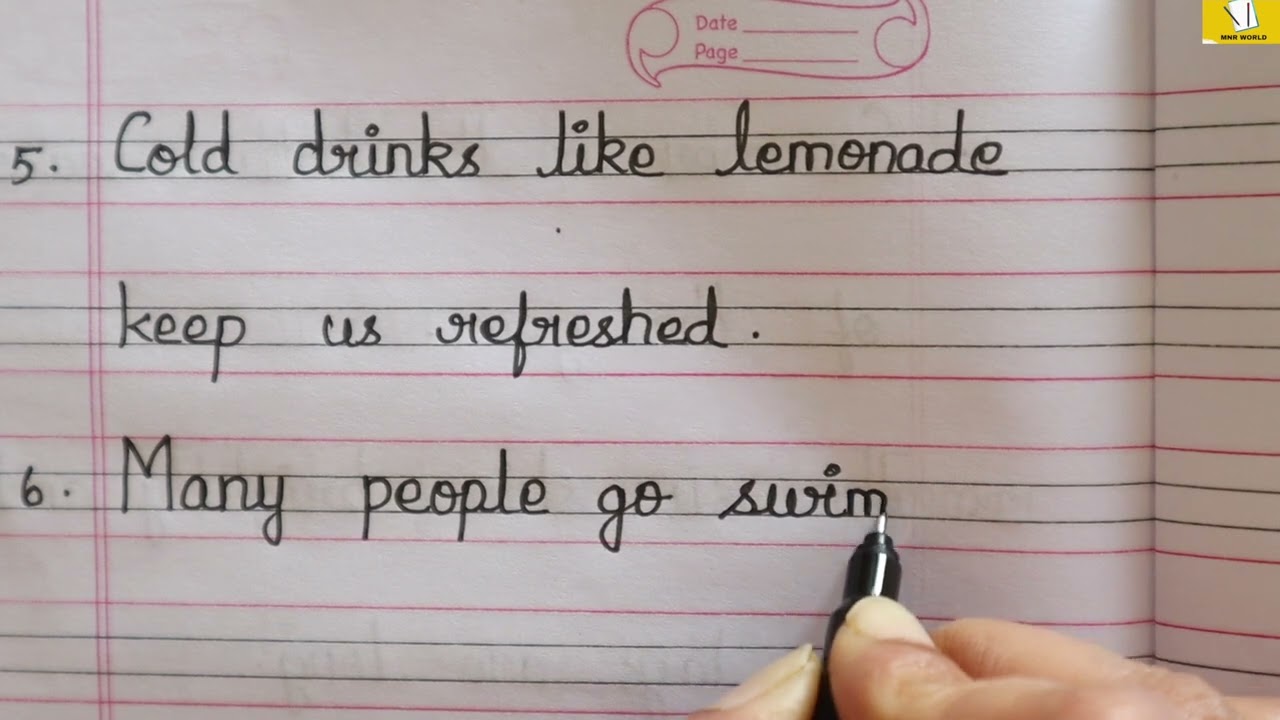 Date
Page
MNR WORLD
5. Cold drinks like lemonade
keep us refreshed.
6. Many people go swim